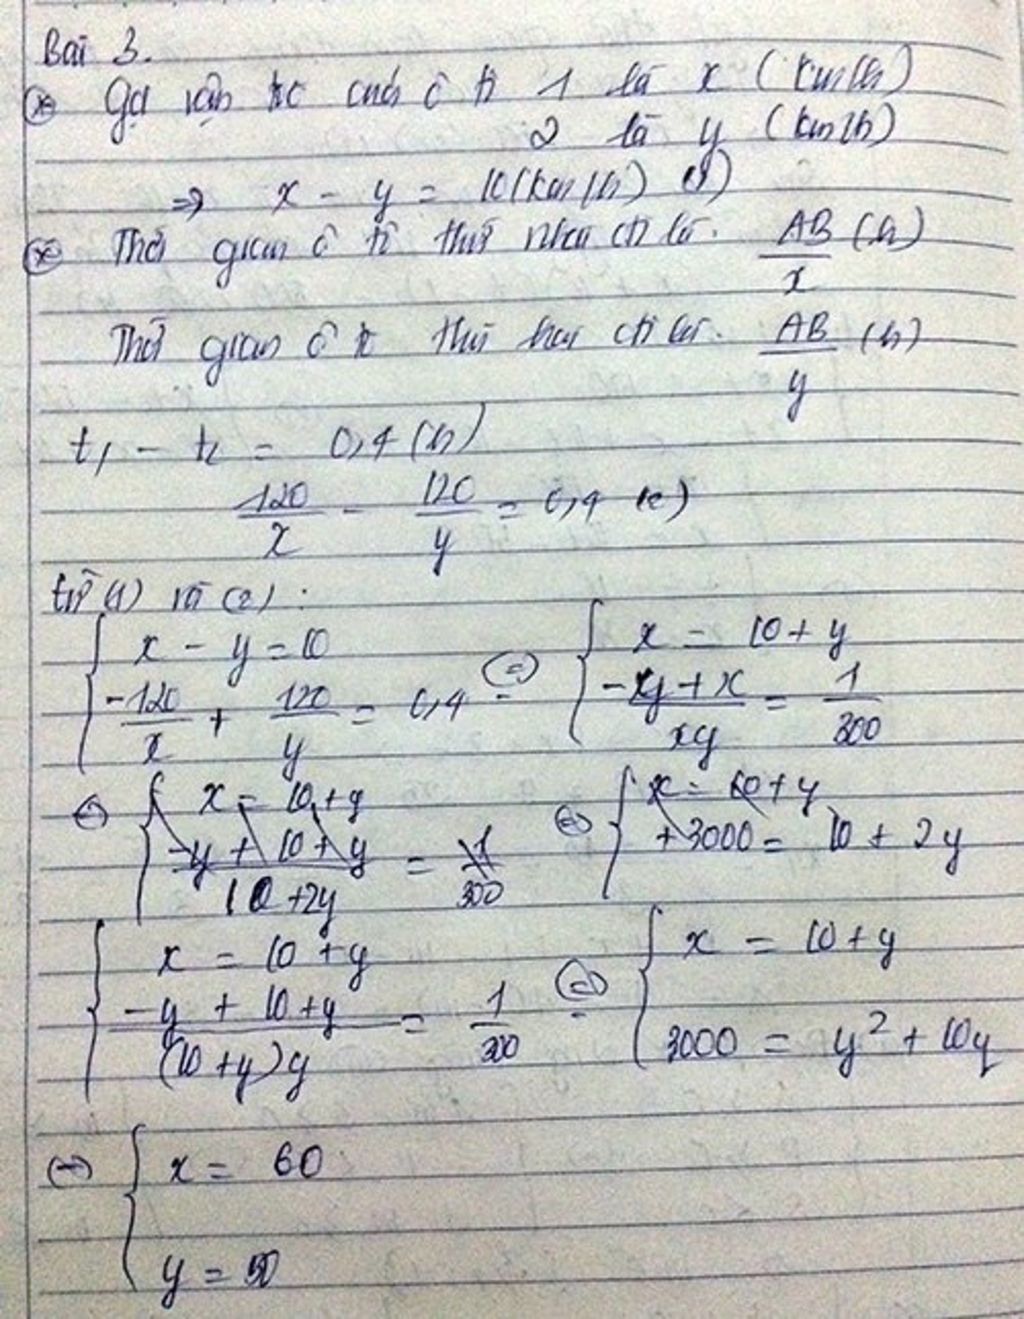 Bài 3.
* Gọi vận tốc của ô tô 1 là x (km/h)
2 là y (km/h)
=> x - y = 10(km/h) (1)
* Thời gian ô tô thứ nhất đi là. AB/x (h)
Thời gian ô tô thứ hai đi là. AB/y (h)
t₁ - t₂ = 0,4 (h)
120/x - 120/y = 0,4 (2)
từ (1) và (2) :
{ x - y = 10 ; -120/x + 120/y = 0,4 <=> { x = 10 + y ; (-y + x)/xy = 1/300
<=> { x = 10 + y ; (-y + 10 + y)/(10 + 2y) = 1/300 <=> { x = 10 + y ; +3000 = 10 + 2y
{ x = 10 + y ; (-y + 10 + y)/((10 + y)y) = 1/300 <=> { x = 10 + y ; 3000 = y² + 10y
<=> { x = 60 ; y = 50